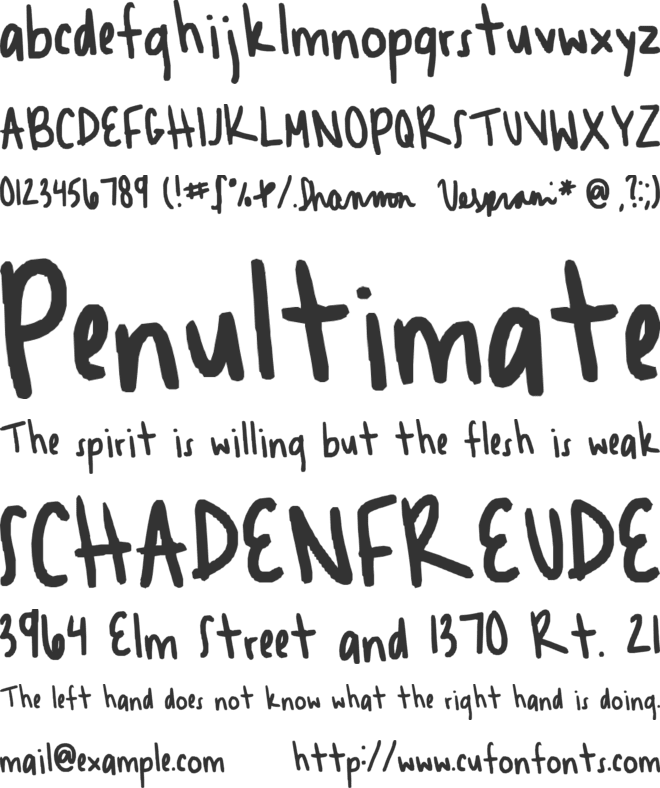 abcdefghijklmnopqrstuvwxyz
ABCDEFGHIJKLMNOPQRSTUVWXYZ
0123456789 (!#$%&/.Shannon Vesprani* @,?:;)
Penultimate
The spirit is willing but the flesh is weak
SCHADENFREUDE
3964 Elm Street and 1370 Rt. 21
The left hand does not know what the right hand is doing.
mail@example.com http://www.cufonfonts.com